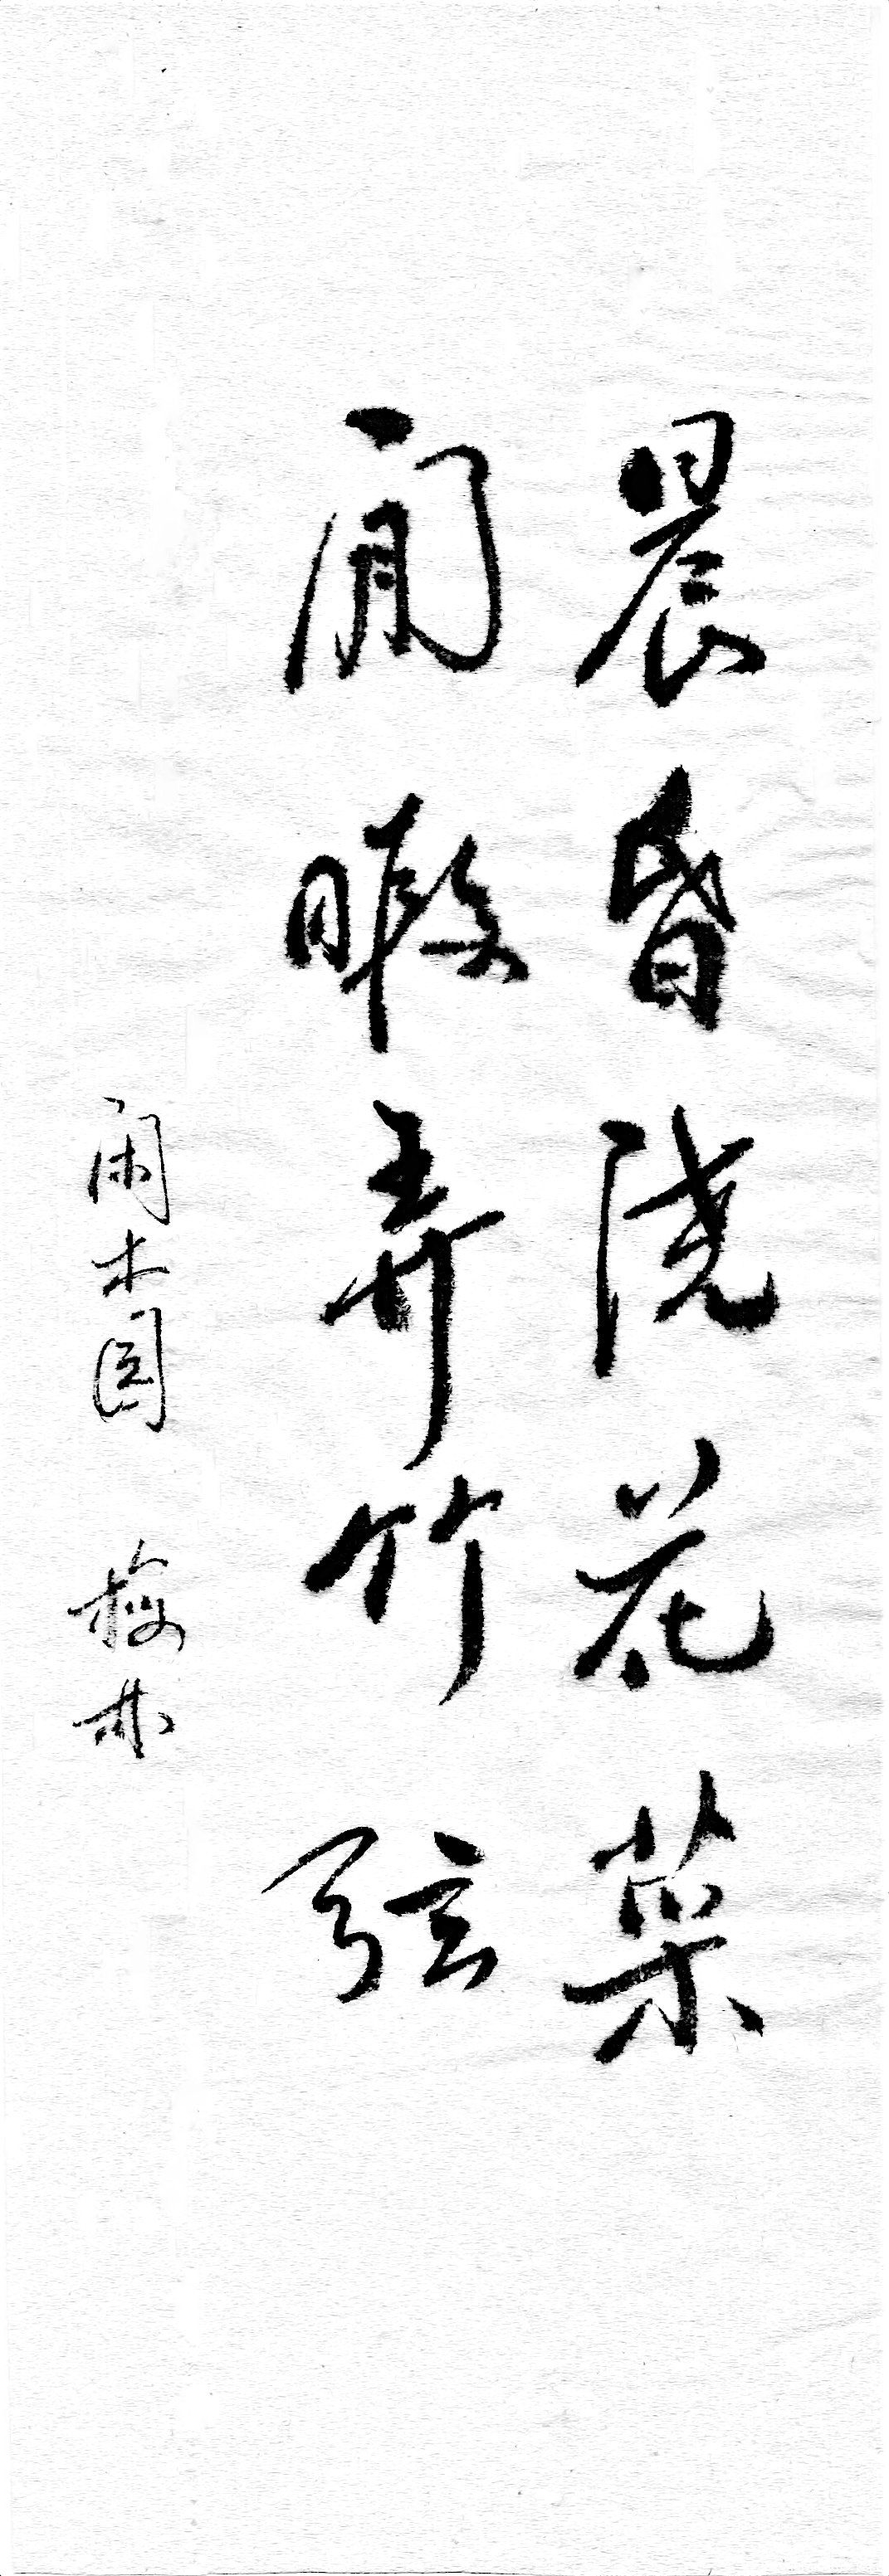 晨昏浇花菜
闲暇弄竹弦
闲木园 梅林